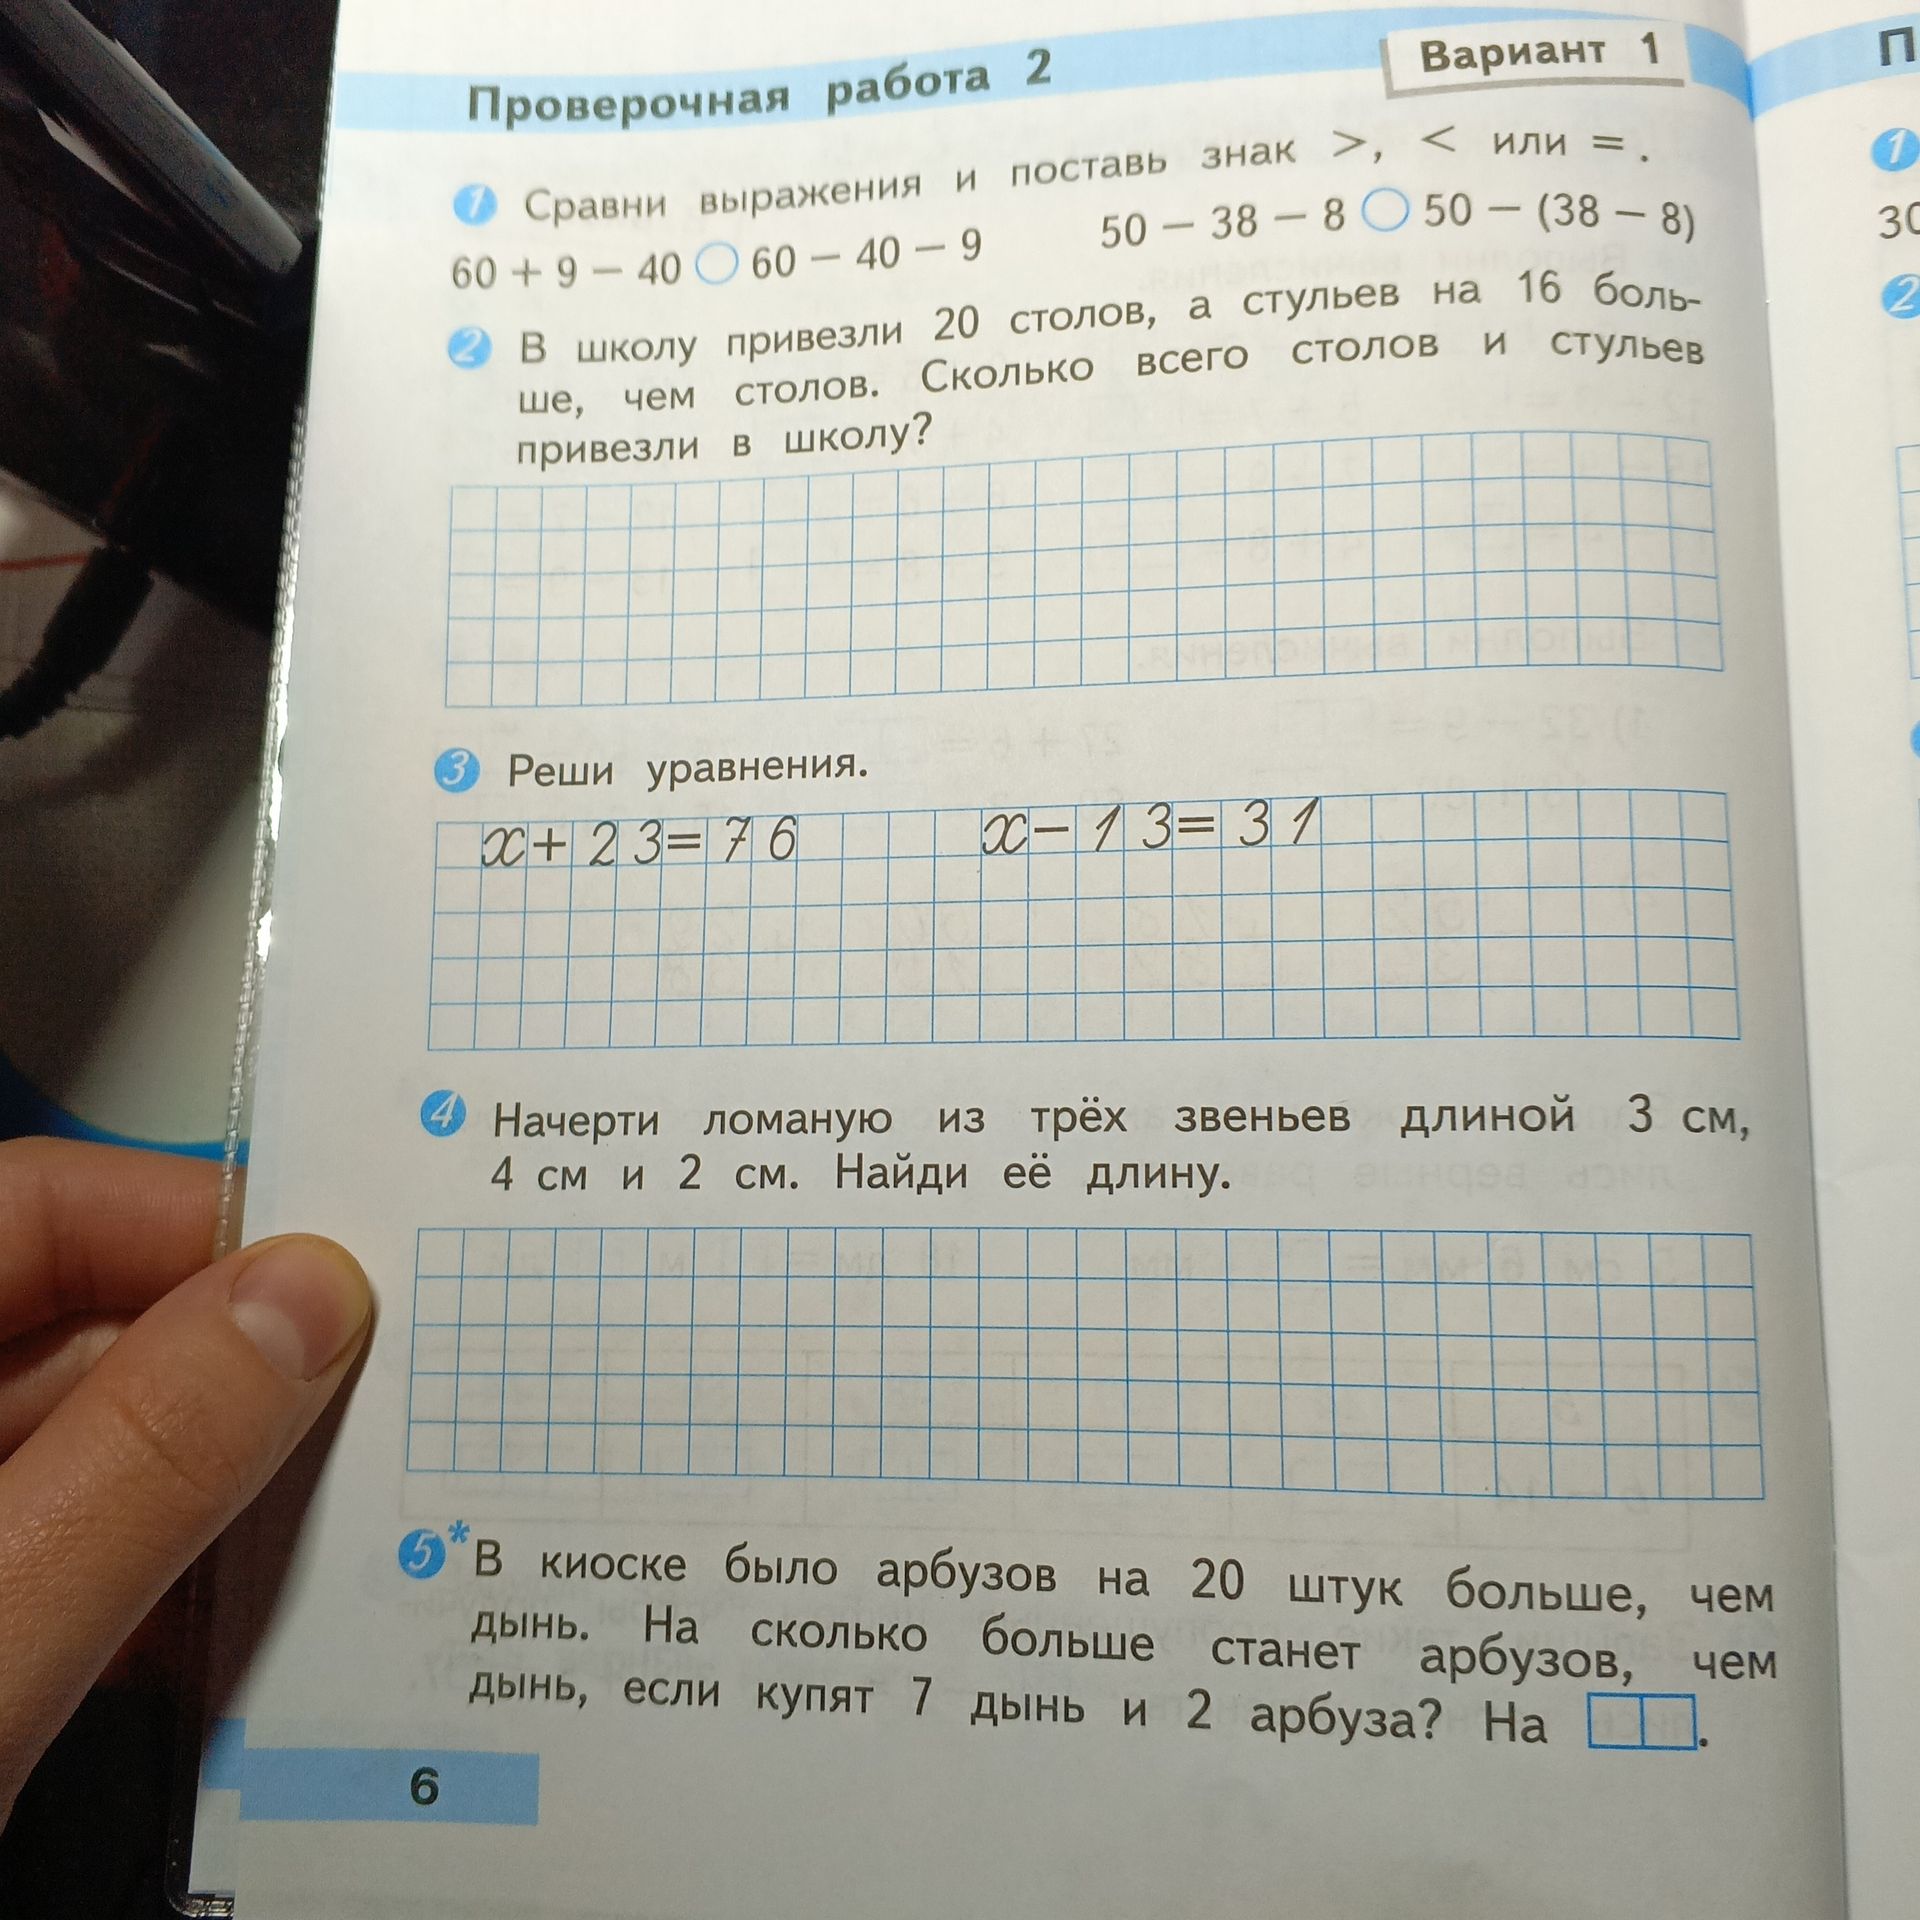 Проверочная работа 2
Вариант 1
1 Сравни выражения и поставь знак >, < или = .
60 + 9 − 40 ○ 60 − 40 − 9 50 − 38 − 8 ○ 50 − (38 − 8)
2 В школу привезли 20 столов, а стульев на 16 боль-
ше, чем столов. Сколько всего столов и стульев
привезли в школу?
3 Реши уравнения.
x + 23 = 76 x − 13 = 31
4 Начерти ломаную из трёх звеньев длиной 3 см,
4 см и 2 см. Найди её длину.
5* В киоске было арбузов на 20 штук больше, чем
дынь. На сколько больше станет арбузов, чем
дынь, если купят 7 дынь и 2 арбуза? На □□.
6
П
1
30
2